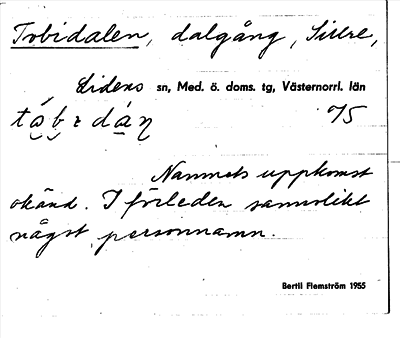 Tobidalen, dalgång, Sillre,
Lidens sn, Med. ö. doms. tg, Västernorrl. län
75
Namnets uppkomst
okänd. I förleden sannolikt
något personnamn.
Bertil Flemström 1955